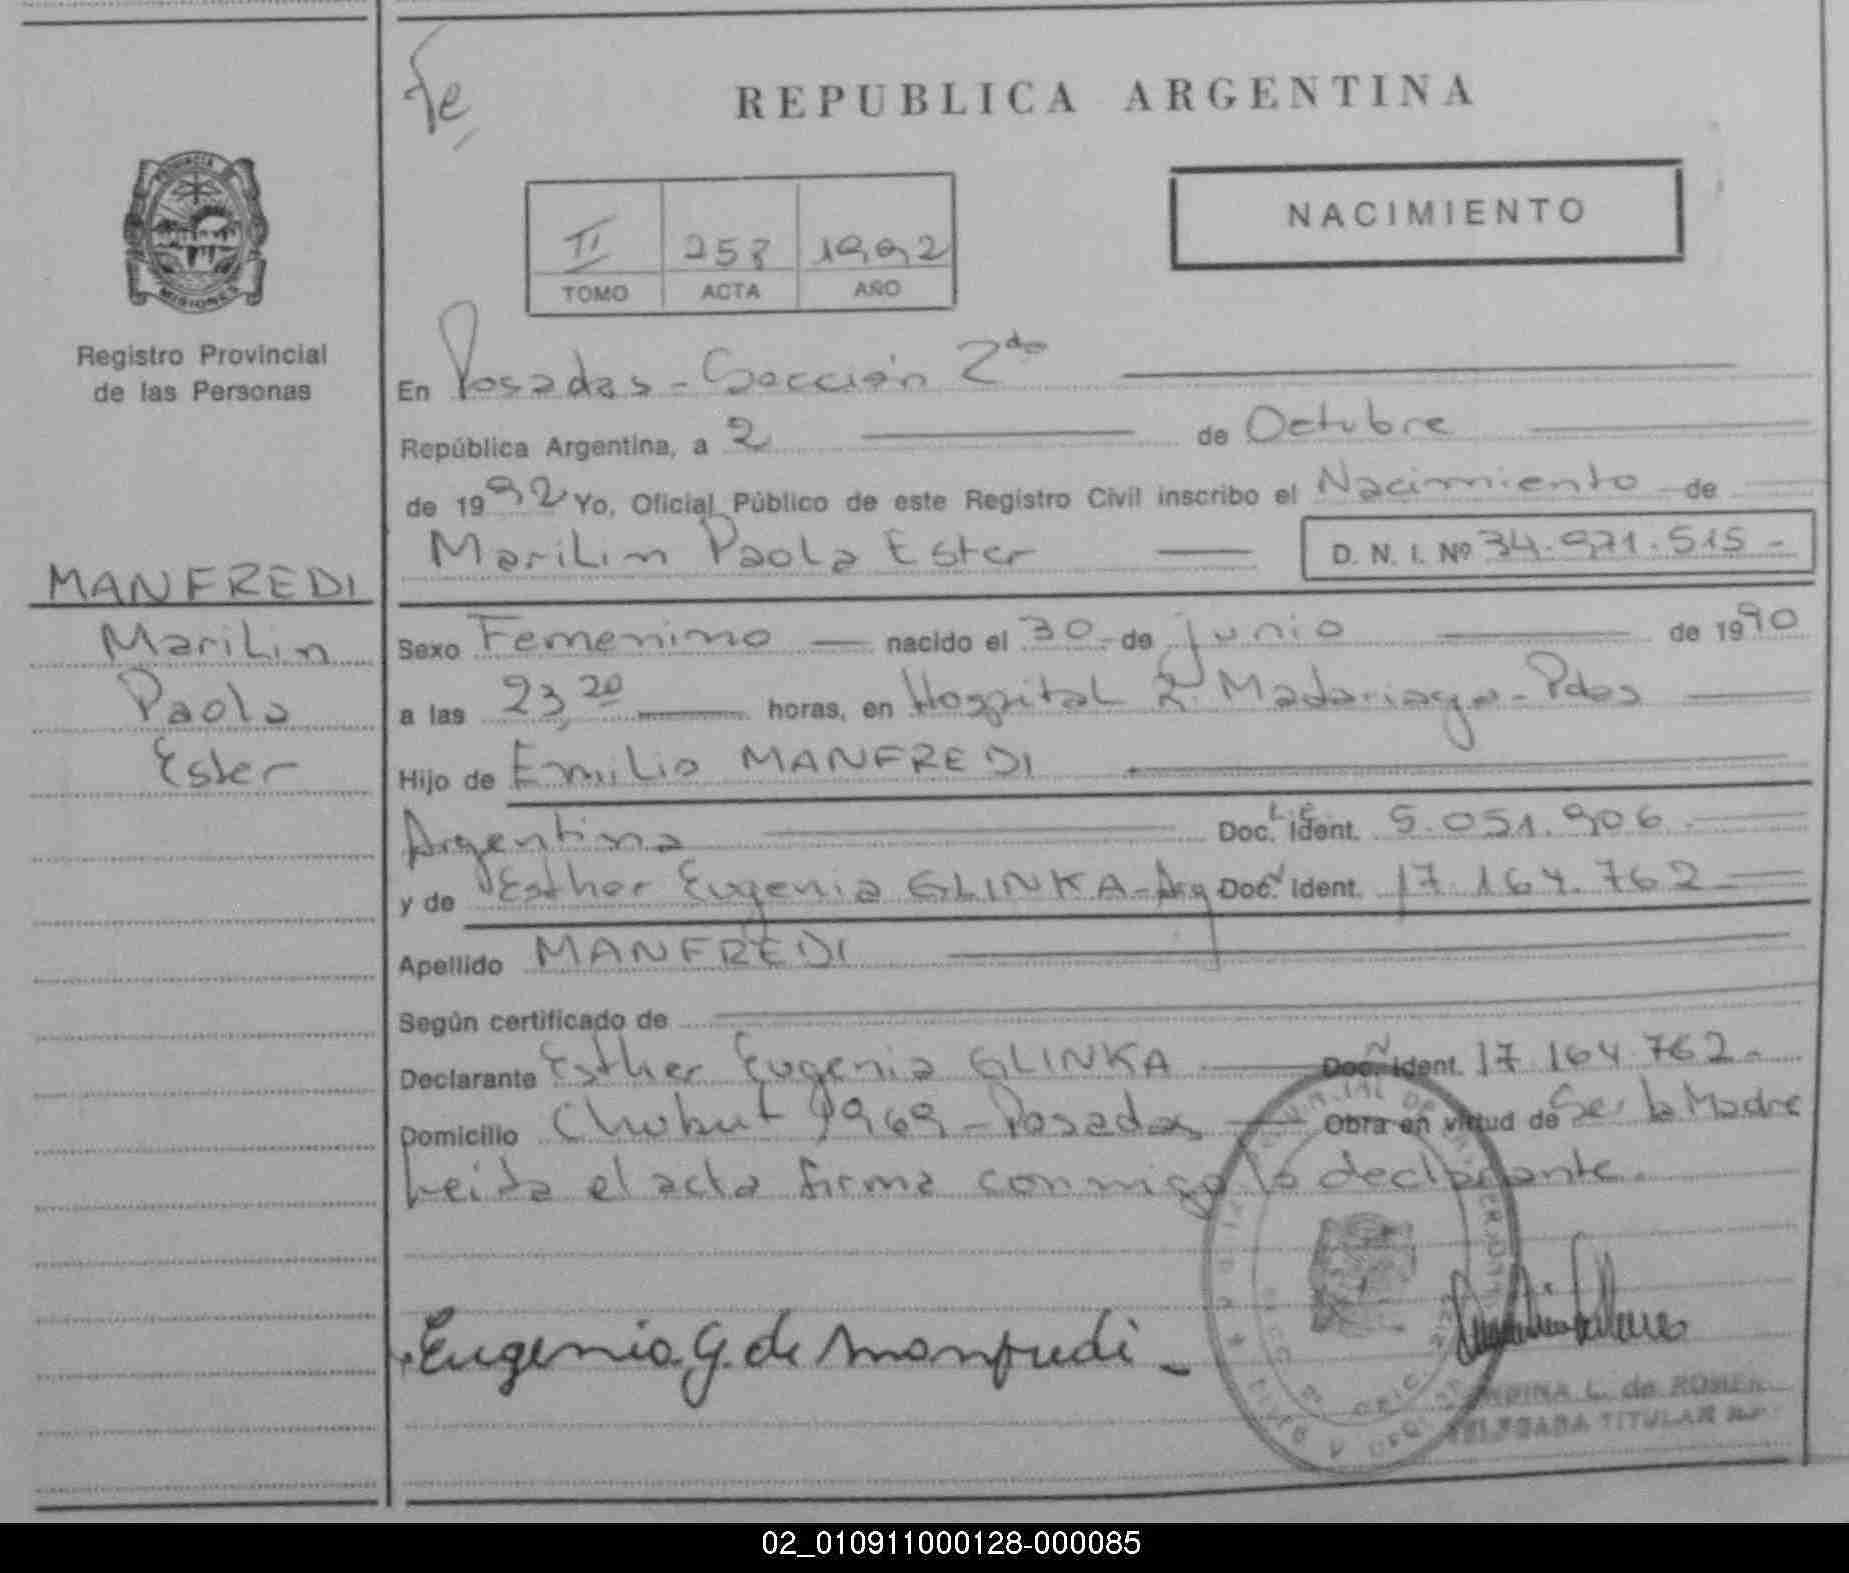 Fe
REPUBLICA ARGENTINA
PROVINCIA
MISIONES
Registro Provincial
de las Personas
II 253 1992
TOMO ACTA AÑO
NACIMIENTO
En Posadas - Sección 2da
República Argentina, a 2 de Octubre
de 1992 Yo, Oficial Público de este Registro Civil inscribo el Nacimiento de
Marilin Paola Ester D. N. I. Nº 34.971.515-
MANFREDI
Marilin
Paola
Ester
Sexo Femenino nacido el 30 de junio de 1990
a las 23,20 horas, en Hospital R. Madariaga - Pdas
Hijo de Emilio MANFREDI
Argentina Doc. L.E. Ident. 5.051.906
y de Esther Eugenia GLINKA - Arg Doc. Ident. 17.164.762
Apellido MANFREDI
Según certificado de
Declarante Esther Eugenia GLINKA Doc. Ident. 17.164.762
Domicilio Chubut 1969 - Posadas Obra en virtud de Ser la Madre
Leida el acta firma conmigo la declarante.
Eugenia G. de Manfredi
L. de
DELEGADA TITULAR
02_010911000128-000085